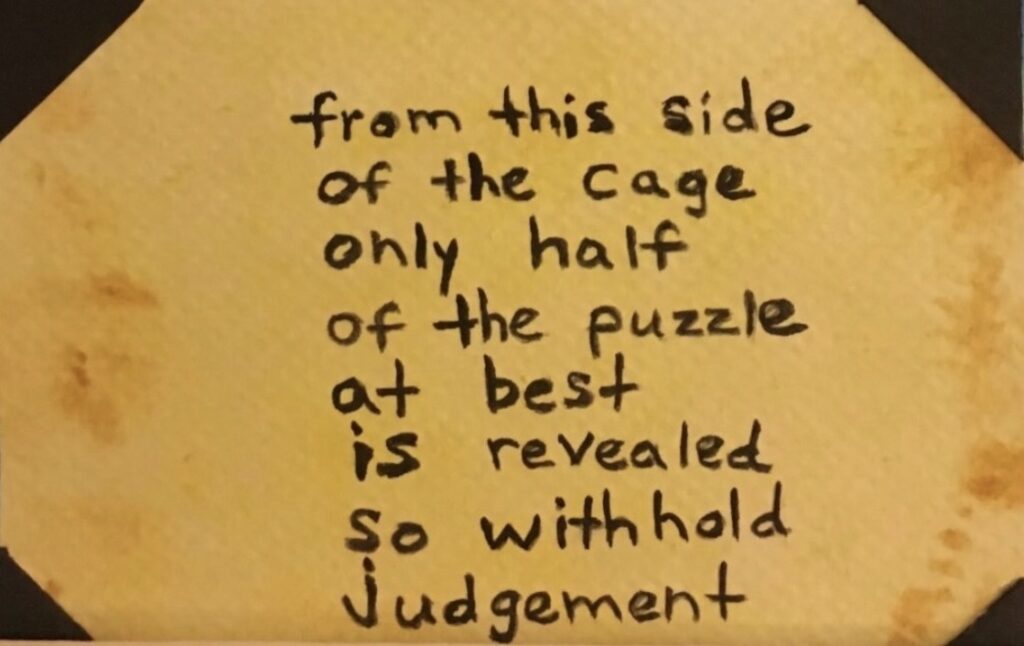 from this side
of the cage
only half
of the puzzle
at best
is revealed
so withhold
judgement